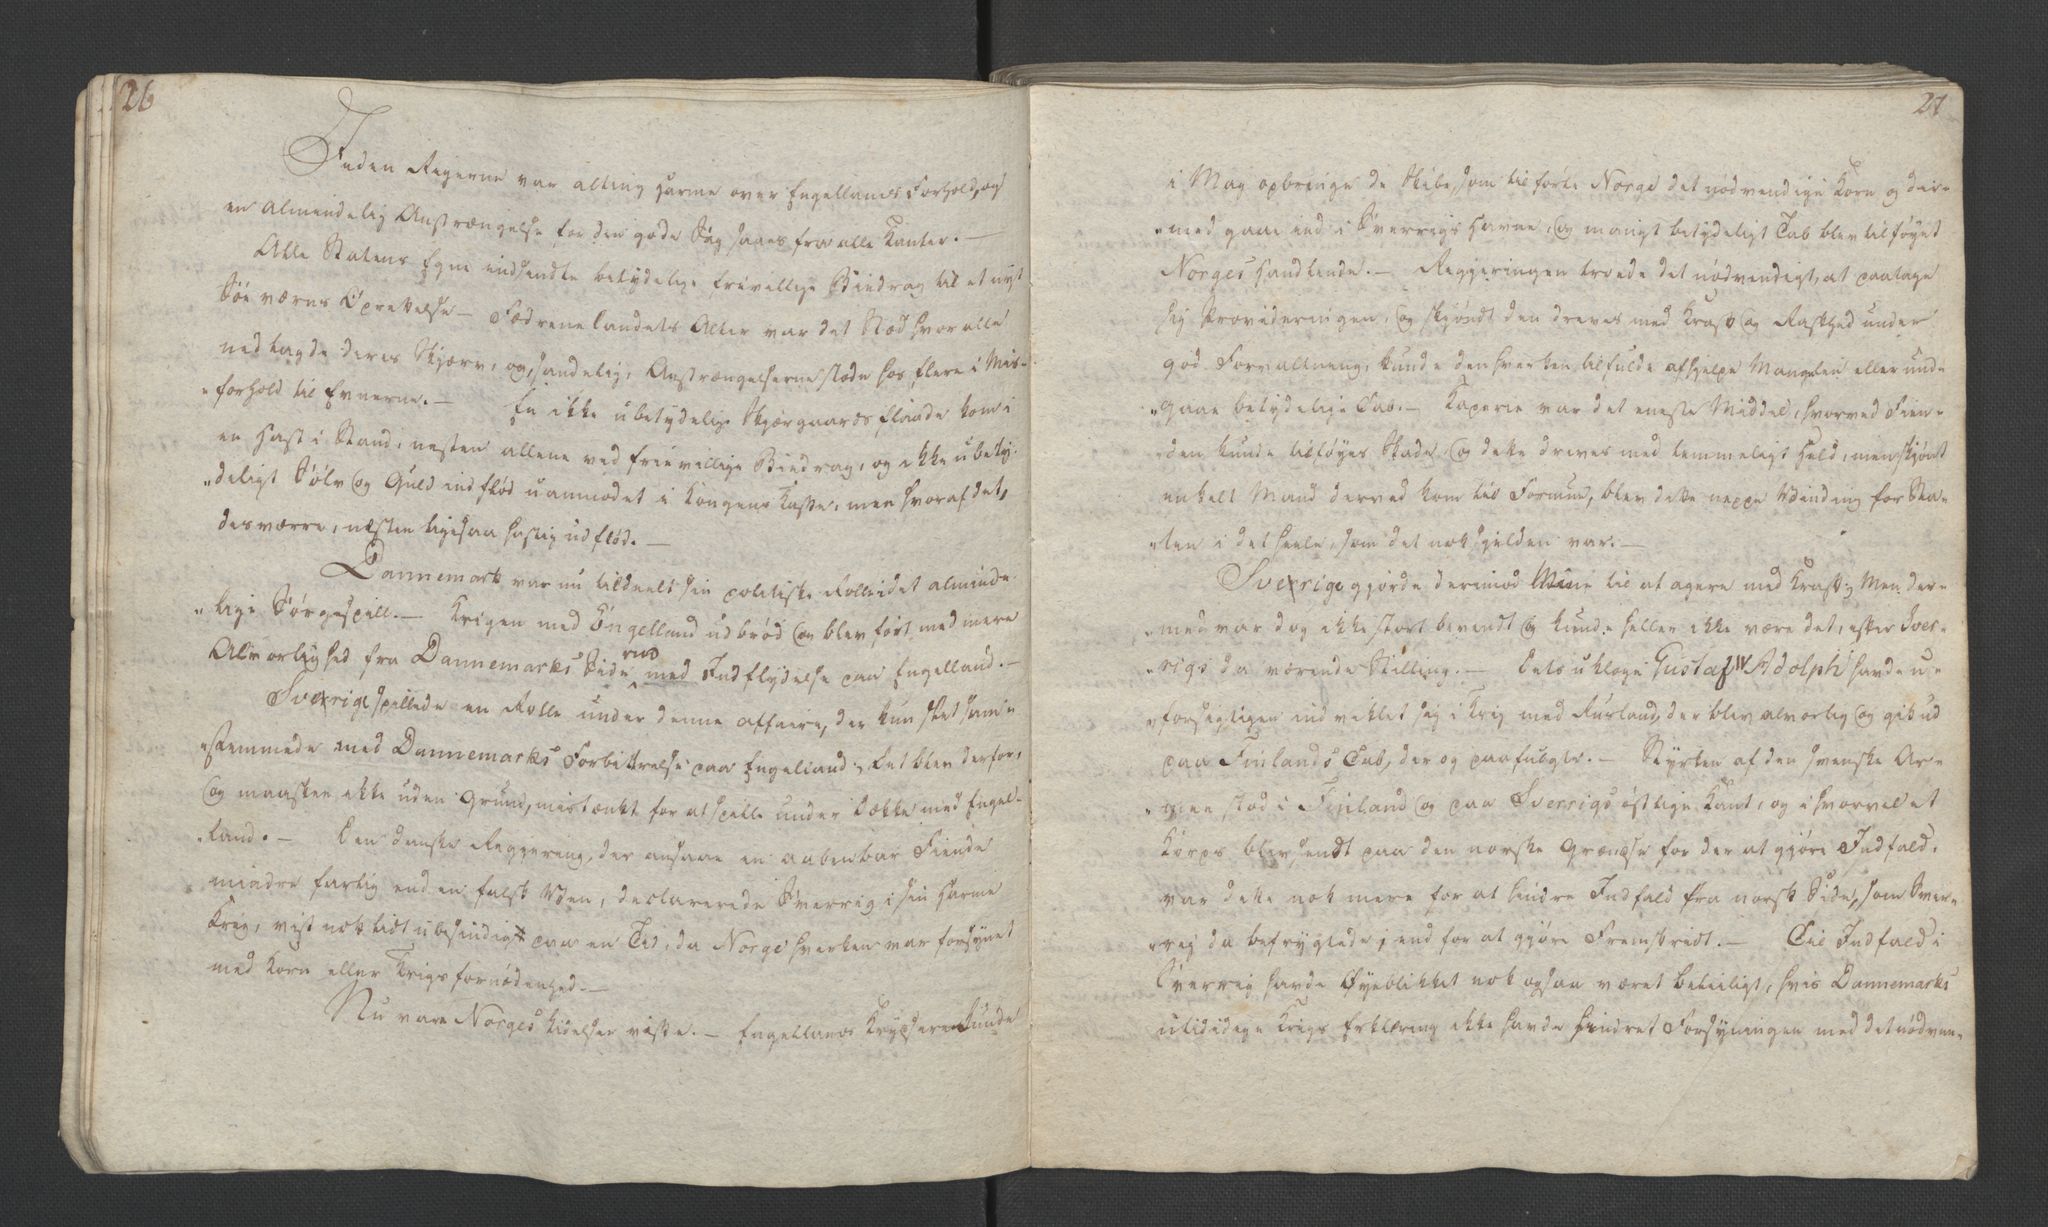 26
Inden Rigerne var alting Harme over Engellands Forhold, og
en almindelig Anstrængelse for den gode Sag saaes fra alle Kanter. —
Alle Statens Egne indsendte betydelige frivillige Bidrag til et nyt
Söeværns Oprettelse — Fædrenelandets Alter var det Stæd hvor alle
nedlagde deres Skjærv, og, sandelig, Anstrængelserne stode hos flere i Mis-
-forhold til Evnerne. — En ikke ubetydelig Skjærgaards flaade kom i
en Hast i Stand, nesten allene ved frievillige Biedrag, og ikke ubety-
-deligt Sölv og Guld indflöd uanmodet i Kongens Kasse, men hvoraf det,
desværre, næsten ligesaa hastig udflöd. —
Dannemark var nu tildeelt sin politiske Rolle i det alminde-
-lige Sörgespill. — Krigen med Engelland udbröd og blev fört med mere
Alvorlighed fra Dannemarks Side end med Indflydelse paa Engelland. —
Sverige spillede en Rolle under denne affaire, der kun slet sam-
-stemmede med Dannemarks Forbittrelse paa Engelland; Det blev derfor,
og maaskee ikke uden Grund, mistænkt for at spille under Dække med Engel-
-land. — Den danske Reggering, der ansaae en aabenbar Fiende
mindre farlig end en falsk Ven, declarerede Sverrig i sin Harme
Krig, vist nok lidt ubesindigt paa en Tid, da Norge hverken var forsynet
med Korn eller Krigsfornödenhed. —
Nu vare Norges Lidelser visse. — Engellands Krydsere kunde
27
i Mag opbringe de Skibe, som til förte Norge det nödvendige Korn og der-
-med gaae ind i Sverrigs Havne, og mangt betydeligt Tab blev tilföyet
Norges Handlende. — Reggeringen troede det nödvendigt, at paatage
sig Provideringen, og skjöndt den dreves med Kraft og Raskhed under
god Forvaltning, kunde den hverken tilfulde afhjelpe Manglen eller und-
-gaae betydelige Tab. — Kaperie var det eneste Middel, hvorved Fien-
-den kunde tilföyes Skade, og dette dreves med temmeligt Held, men skjönt
enkelt Mand derved kom til Formue, blev dette neppe Vinding for Sta-
-ten i det heele, som det nok sjelden var. —
Sverrige gjorde derimod Mine til at agere med Kraft; Men der-
-med var dog ikke stort bevendt og kunde heller ikke være det, efter Sver-
-rigs da værende Stilling. — Dets ukloge Gustaf IV Adolph havde u-
-forsigtigen indviklet sig i Krig med Rusland, der blev alvorlig og gik ud
paa Finlands Tab, der og paafulgte. — Styrken af den svenske Ar-
-mee stod i Finland og paa Sverrigs östlige Kant, og i hvorvel et
Korps blev sendt paa den norske Grændse for der at gjöre Indfald,
var dette nok mere for at hindre Indfald fra norsk Side, som Sver-
-rig da befrygtede, end for at gjöre Fremskridt. — Til Indfald i
Sverrig havde Øyeblikket nok ogsaa været beleiligt, hvis Dannemarks
utididige Krigs Erklæring ikke havde hindret Forsyningen med det nödven-